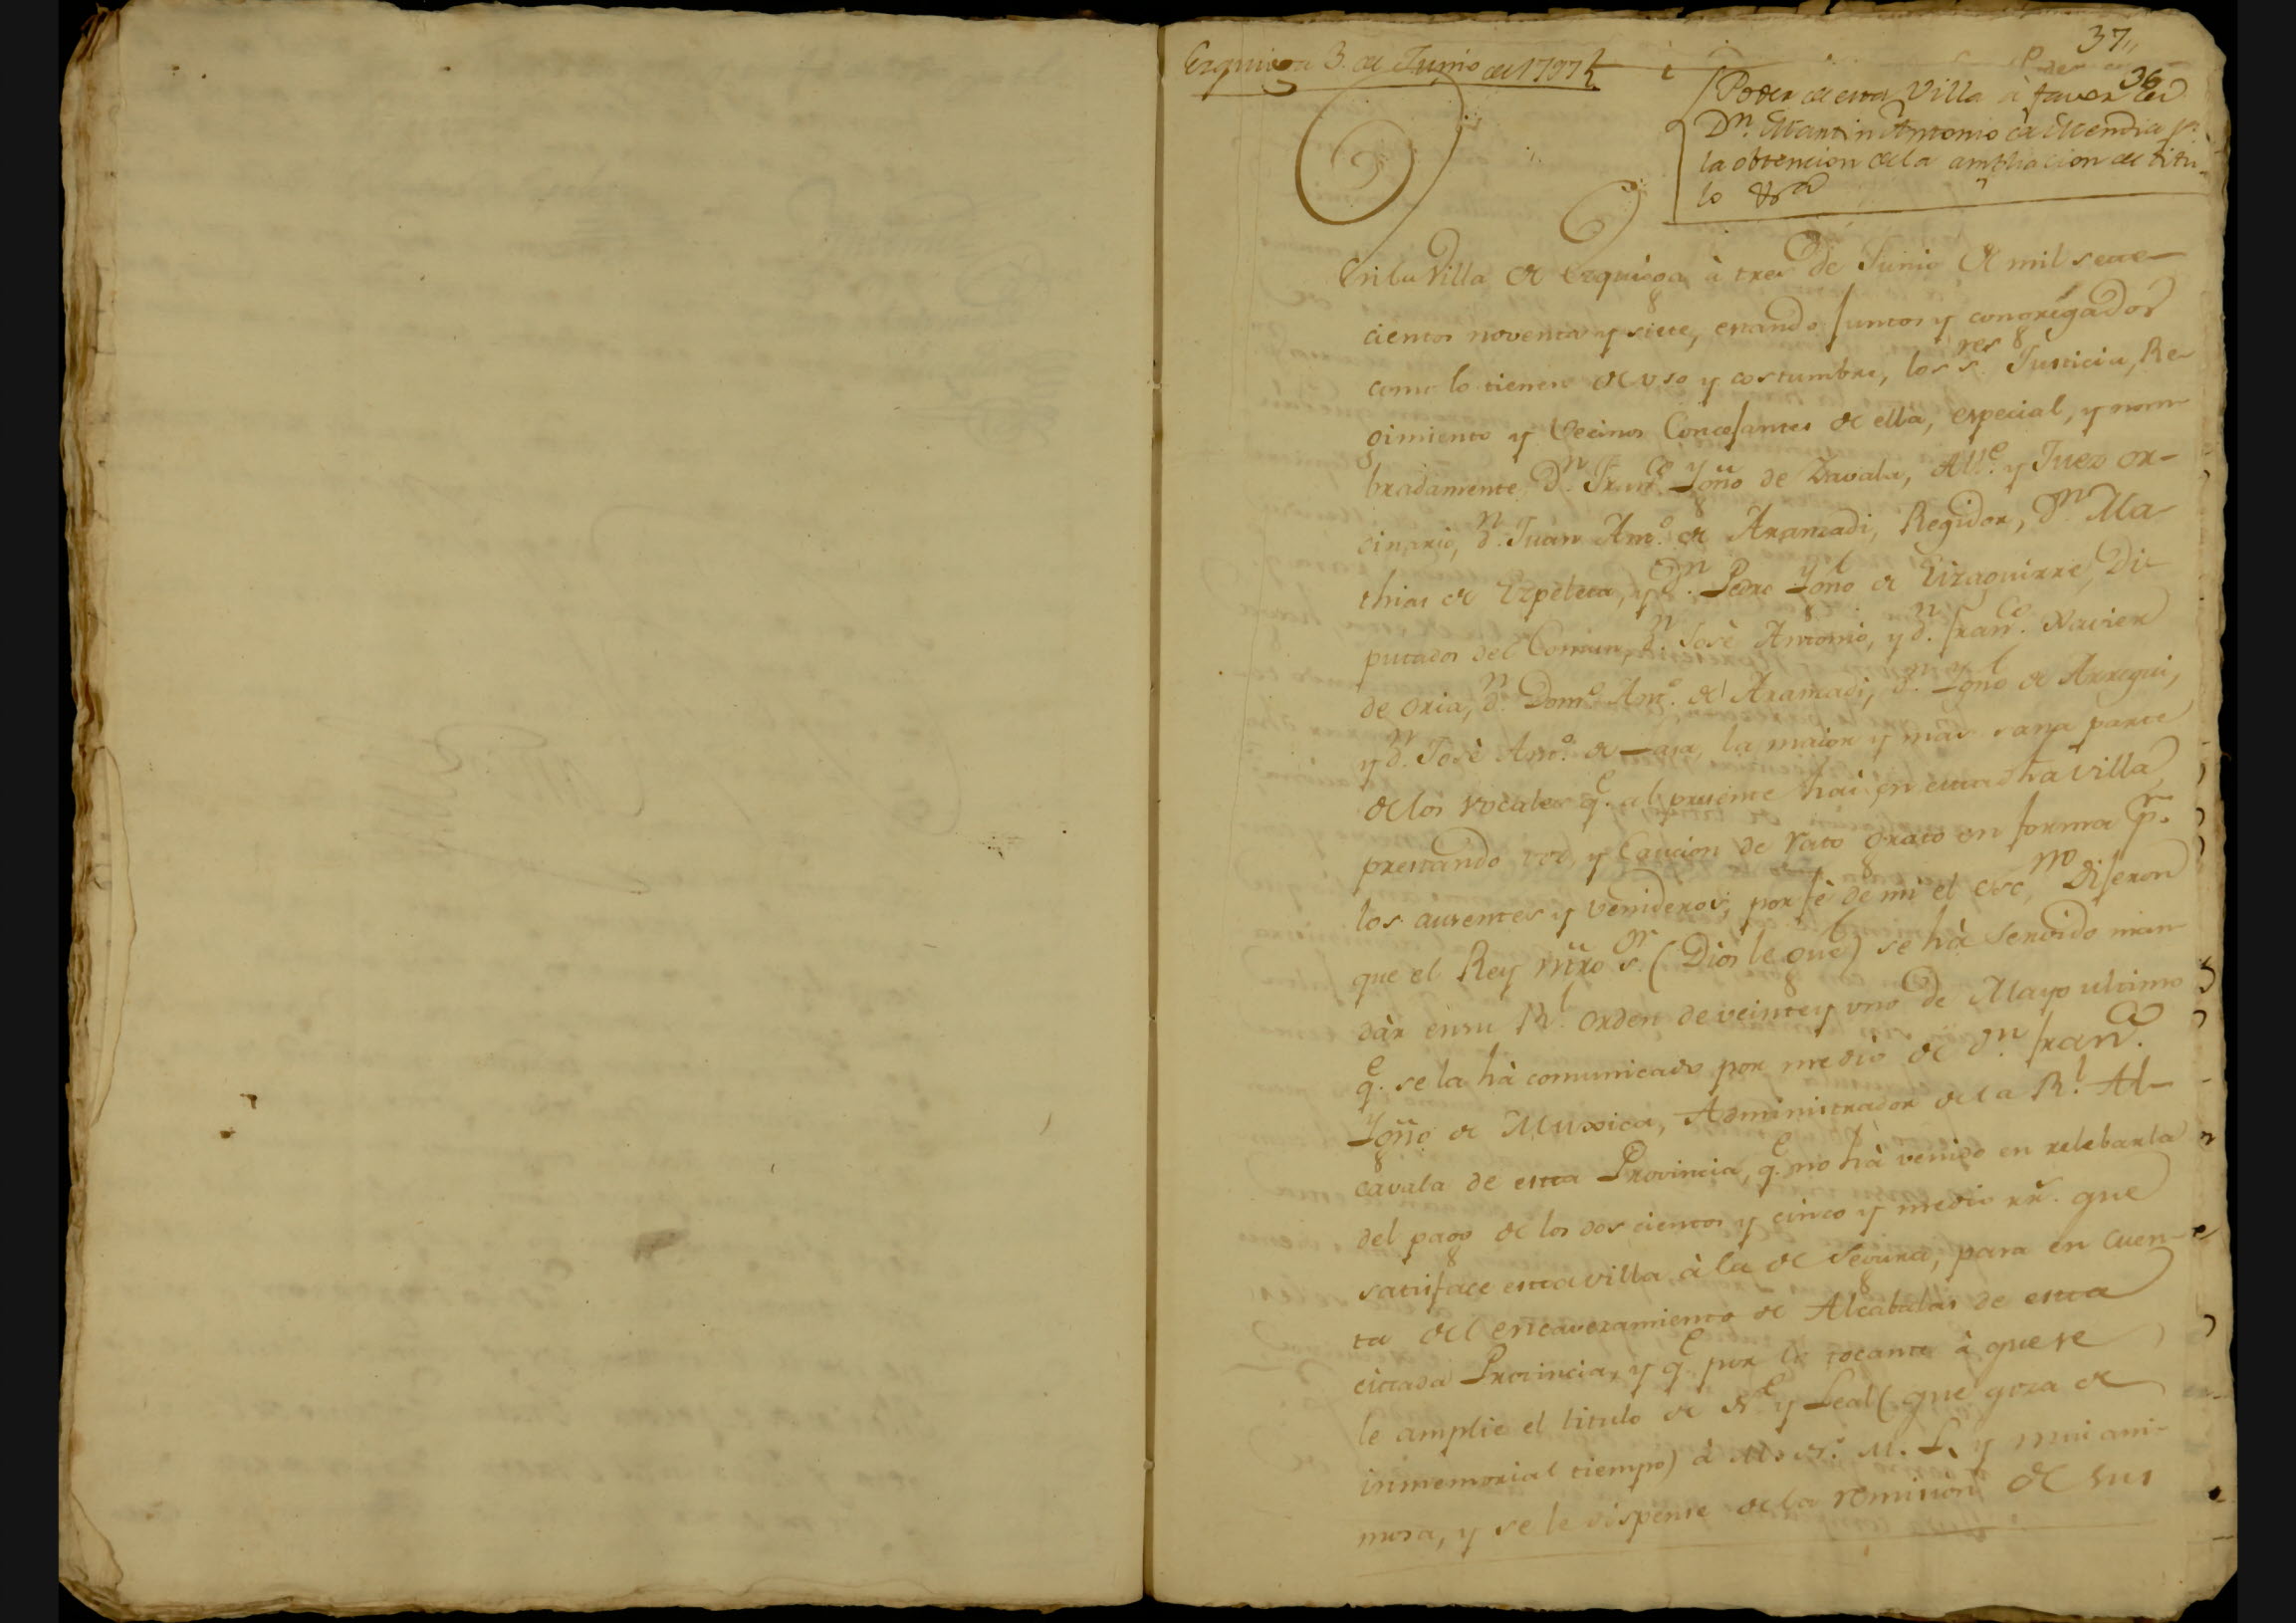 37,,
36
Ezquioga 3. de Junio de 1797
Poder de esta Villa à favor de
Dn. Martin Antonio de Mendia pa.
la obtencion de la ampliacion de titu-
lo &ra
En la Villa de Ezquioga à tres de Junio de mil sete-
cientos noventa y siete, estando juntos y congregados
como lo tienen de vso y costumbre, los sres. Justicia, Re-
gimiento y Vecinos Concejantes de ella, especial, y nom-
bradamente Dn. Franco. Ygno de Zavala, Alle. y Juez or-
dinario, Dn. Juan Anto. de Aramadi, Regidor, Dn. Ma-
thias de Ezpeleta, y Dn. Pedro Ygno de Eizaguirre, Di-
putados del Comun, Dn. José Antonio, y Dn. Franco. Xavier
de Oria, Dn. Domo. Anto. de Aramadi, Dn. Ygno de Arregui,
y Dn. José Anto. de Lasa, la maior y más sana parte
de los vocales qe. al presente hai en esta dha villa,
prestando voz, y Caucion de rato grato en forma pr.
los ausentes y venideros, por fè de mi el essno. Dijeron
que el Rey nro sr. (Dios le gue) se hà servido man-
dàr en su Rl. orden de veinte y vno de Mayo ultimo
qe. se la hà comunicado por medio de Dn. Franco.
Ygno de Muxica, Administrador de la Rl. Al-
cavala de esta Provincia, qe. no hà venido en relebarla
del pago de los dos cientos y cinco y medio rrs. que
satisface esta villa à la de Segura, para en cuen-
ta del encavezamiento de Alcabalas de esta
citada Provincia, y qe. por lo tocante à que se
le amplie el titulo de Ne. y Leal (que goza de
inmemorial tiempo) à M. N. M. L. y mui ani-
mosa, y se le dispense de la remision de sus